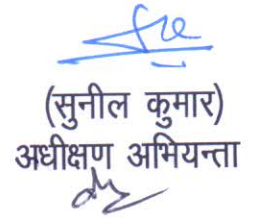 (सुनील कुमार)
अधीक्षण अभियन्ता